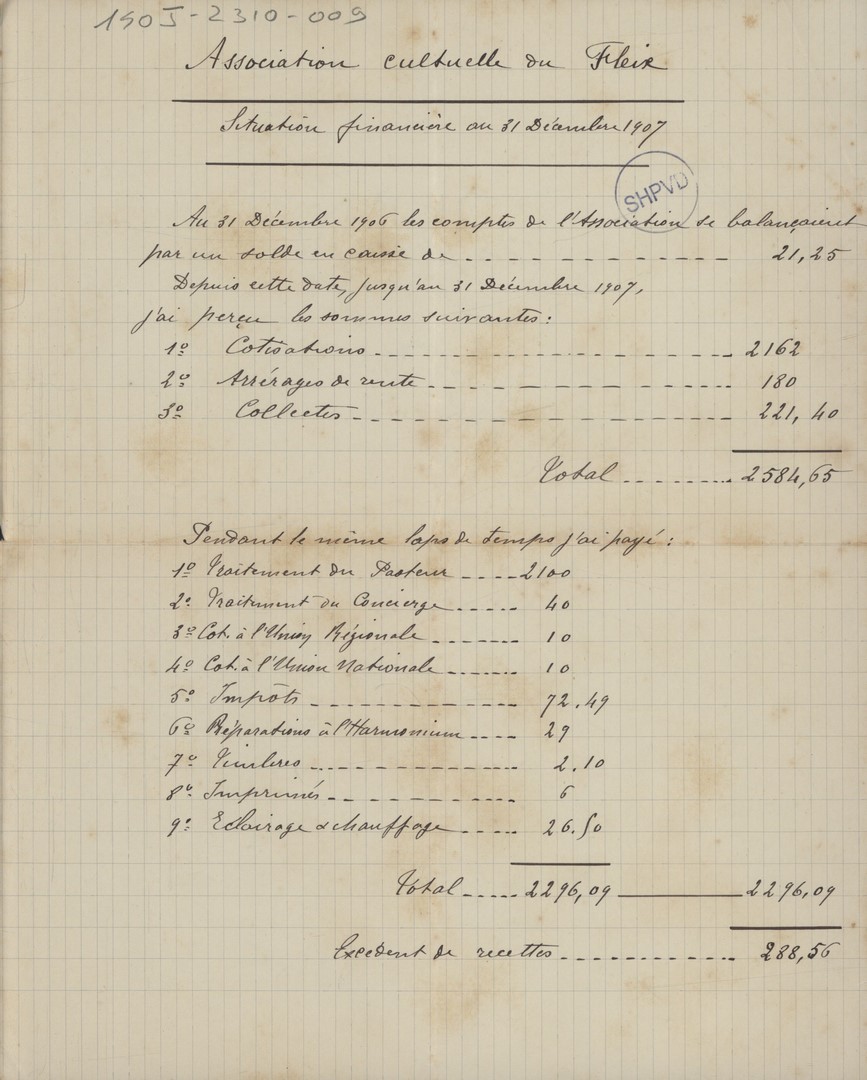 150J-2310-009
Association cultuelle du Fleix
Situation financière au 31 Décembre 1907
SHPVD
Au 31 Décembre 1906 les comptes de l'Association se balançaient
par un solde en caisse de 21,25
Depuis cette date, jusqu'au 31 Décembre 1907,
j'ai perçu les sommes suivantes :
1º Cotisations 2162
2º Arrérages de rente 180
3º Collectes 221,40
Total 2584,65
Pendant le même laps de temps j'ai payé :
1º Traitement du Pasteur 2100
2º Traitement du Concierge 40
3º Cot. à l'Union Régionale 10
4º Cot. à l'Union Nationale 10
5º Impôts 72.49
6º Réparations à l'Harmonium 29
7º Timbres 2.10
8º Imprimés 6
9º Eclairage & chauffage 26.50
Total 2296,09 2296,09
Excédent de recettes 288,56